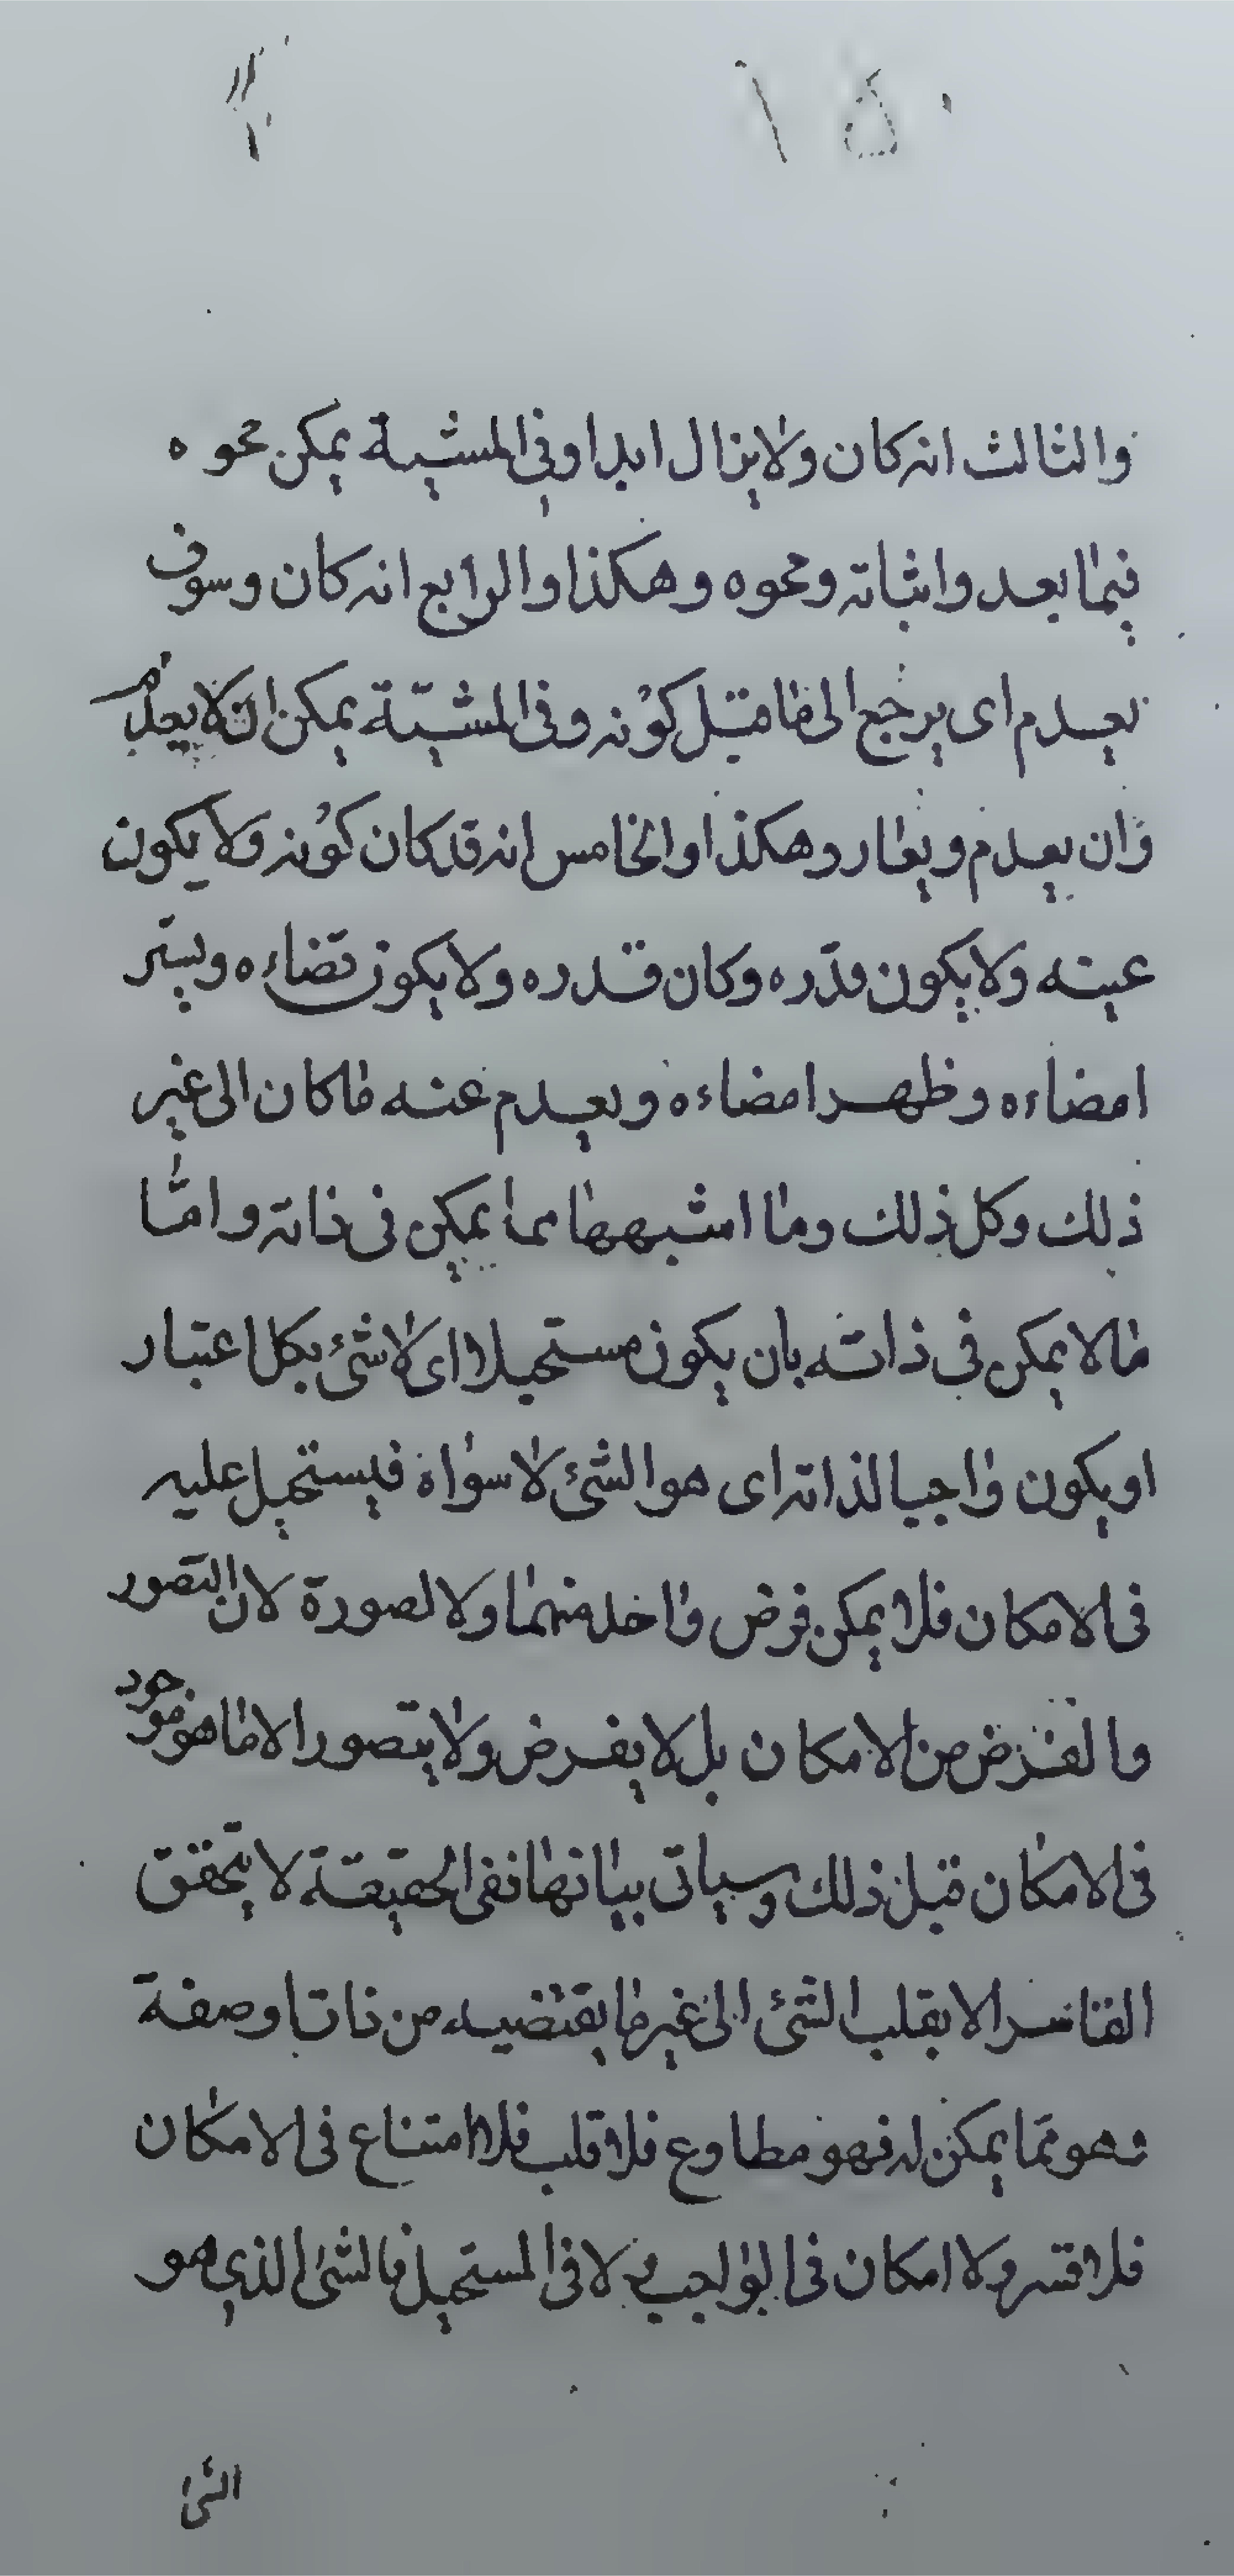 والثالث انه كان ولا يزال ابدا وفى المشية يمكن محوه
فيما بعد واثباته ومحوه وهكذا والرابع انه كان وسوف
يعدم اى يرجع الى ما قبل كونه وفى المشية يمكن ان لا يعدم
وان يعدم ويعار وهكذا والخامس انه قد كان كونه ولا يكون
عينه ولا يكون قدره وكان قدره ولا يكون قضاءه ويستر
امضاءه وظهر امضاءه ويعدم عنه ما كان الى غير
ذلك وكل ذلك وما اشبهها مما يمكن فى ذاته واما
ما لا يمكن فى ذاته بان يكون مستحيلا اى لا شئ بكل اعتبار
او يكون واجبا لذاته اى هو الشئ لا سواه فيستحيل عليه
فى الامكان فلا يمكن فرض واحد منهما ولا لصورة لان التصور
والفرض من الامكان بل لا يفرض ولا يتصور الا ما هو موجود
فى الامكان قبل ذلك وسياتى بيانها نفى الحقيقة لا يتحقق
القاسر الا بقلب الشئ الى غير ما يقتضيه من ذات او صفة
وهو مما يمكن له فهو مطاوع فلا قلب فلا امتناع فى الامكان
فلا قسر ولا امكان فى الواجب لا فى المستحيل فالشئ الذي هو
الشئ